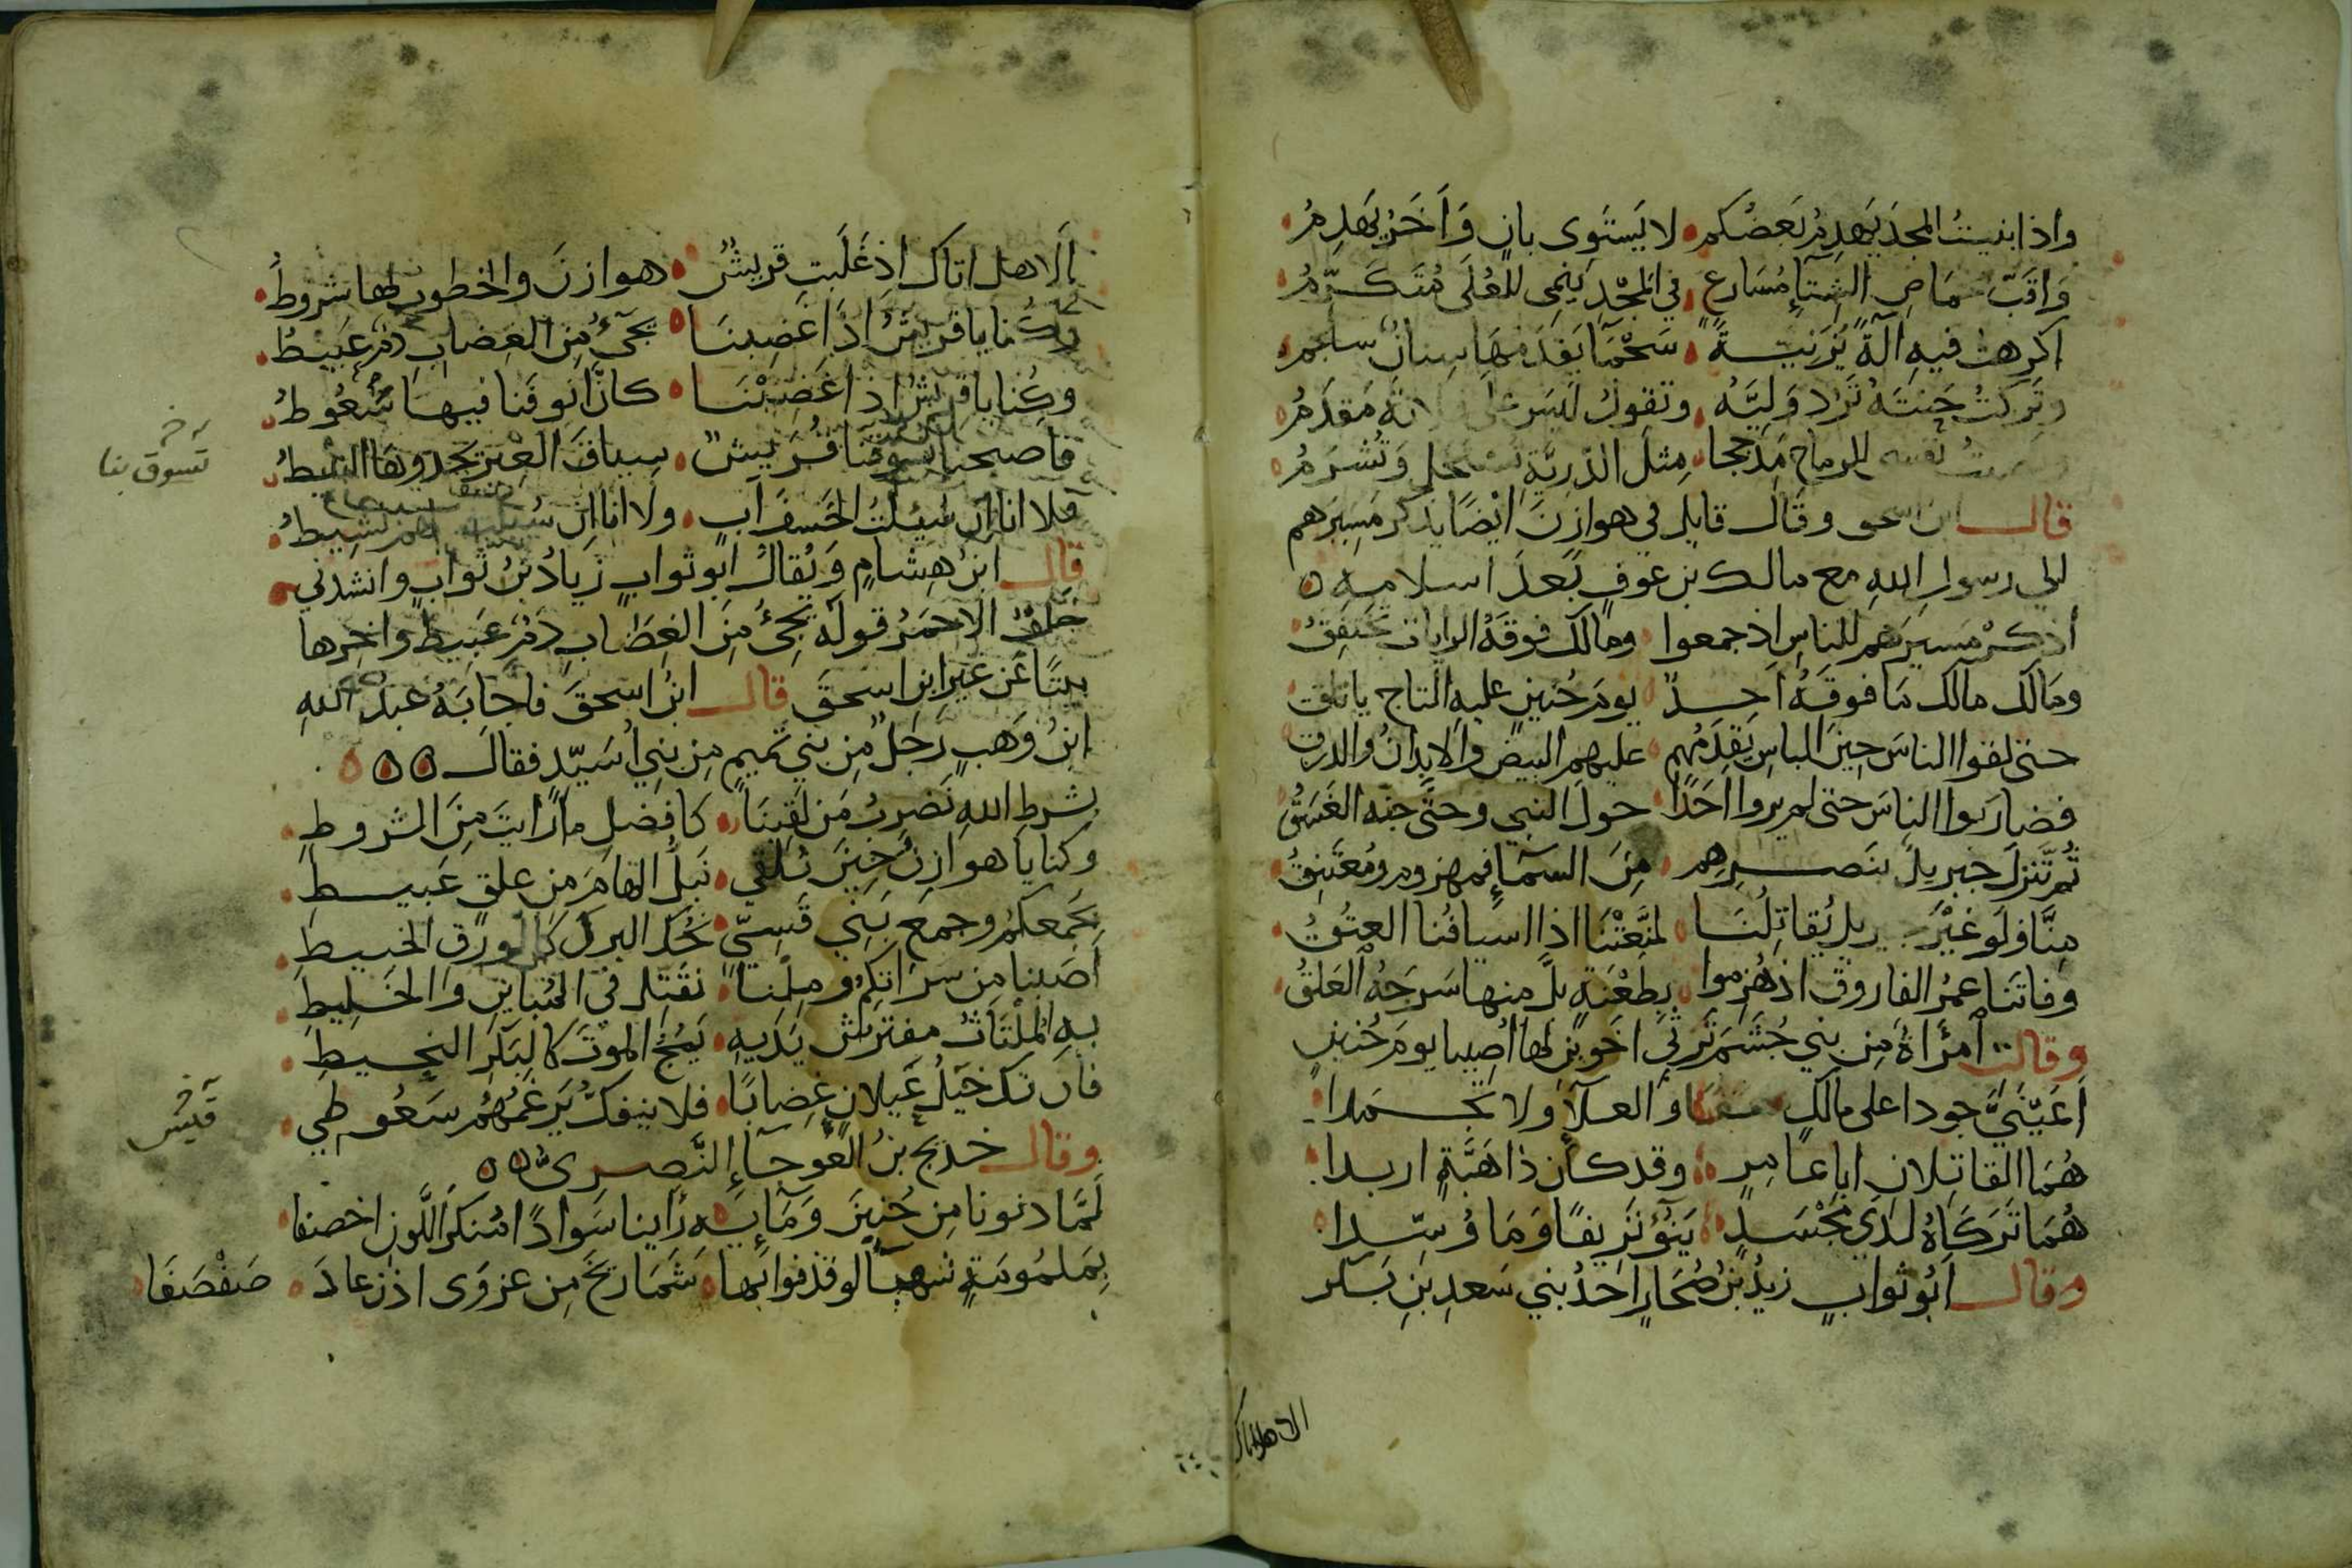 واذا بنيتُ المجدَ يَهدِمُ بَعضُكم لا يَستَوِى بانٍ وَآخَرُ يَهدِمُ
وَاقَبَّ مَاصِ الشِتآءِ مُسَارعٍ في المَجْدِ يَنمِى للعُلَى مُتَكَرِّمُ
اكرهتُ فيهِ آلَةً يَزَنِيَّةً سَحْمَآ يَقدَمُهَا سِنانٌ سلجم
وتَرَكتُ حَنتَهُ تَرُد وَلِيَّهُ وتقولُ ليسَ على ... مَقدَمُ
ونصبتُ نفسى للرماح مدججا مِثلَ الدَّرِيَّةِ تُستَحَل وَتُشرَمُ
قال ابن اسحق وقال قايل في هوازنَ ايْضًا يذكر مَسِيرَهم
الي رسول اللهِ مع مالك بن عوفٍ بَعدَ اسلامِهِ
أذكرْ مَسِيرَهم للناسِ اذ جمعوا ومالك فوقَهُ الراياتُ تَختَفِقُ
ومَالك مالك مَا فوقَهُ احدٌ يومَ حُنينٍ عليهِ التاج ياتلق
حتى لقوا الناسَ حِينَ الباسِ يَقدُمُهم عليهم البيضُ والابدانُ والدرق
فضاربوا الناسَ حتى لم يروا احَدًا حولَ النبي وحتَّى جنه الغَسَقُ
ثُمَّتَ نَزلَ جبريل بنَصرِهم مِنَ السمآءِ فمهزوم ومُعتَنِقُ
مِنَّا وَلَو غَيْرُ جبريل يُقاتِلُنَا لمنَّعَتْنَا اذا اسيافُنا العتُقُ
وفاتَنَا عمَرُ الفاروقُ اذ هُزِموا بِطعْنَةٍ بلَّ منها سَرجَهُ العَلَقُ
وقالت امرَاةٌ مِن بني جُشَمَ تَرثي اخَوينِ لها اُصيبا يومَ حُنينٍ
اَعَيْنَيَّ جودا على مالك معا والعلآ ولا تَجمدا
هُمَا القاتلانِ ابا عَامرٍ وقد كان ذا هَبَّةٍ اربدا
هُمَا تَرَكَاهُ لَدَي مَجْسَدٍ يَنُوءُ نَزيفًا وَمَا وُسِّدا
وقال ابُو ثوابٍ زيدُ بنُ صُحَارٍ اَحَدُ بني سَعدِ بنِ بَكر
الا هل اتاك
اَلا هل اتاكَ اِذ غَلَبَت قريشٌ هوازنَ والخطوبُ لها شروطُ
وكُنا يا قريشُ اذا غَضِبنَا يجَىٔ مِنَ الغِضابِ دَم عَبيطُ
وكُنا يا قريشُ اذا غَضِبْنَا كانَّ انوفَنا فيها سُعُوطُ
فاصبحنا تسوقنا قُرَيشٌ سِياقَ العِيرِ يحَدوهَا النبيطُ
تَسوق بنا
فلا انا ان سُيلتُ الخسفَ آبٍ ولا انا ان ... لهم نشيطُ
قال ابنُ هِشامٍ وَيُقالُ ابو ثوابٍ زيادُ بنُ ثوابٍ وانشدني
خلفٌ الاحمَرُ قولَه يَجِىُٔ مِنَ الغِضَابِ دَم عَبيط وآخِرها
بيتًا عَن غيرِ ابنِ اسحقَ قال ابنُ اسحقَ فاجابَهُ عبدُ اللهِ
ابنُ وَهَبٍ رَجلٌ مِن بني تميمٍ مِن بني اُسَيّد فقال
بشرطِ اللهِ نَضربُ مَن لَقِينَا كافضلِ ما رَايتَ مِنَ الشروطِ
وكنا يا هوازنُ حِينَ نلقي نَبلُّ الهامَ من علقٍ عَبيطِ
بجَمعكم وجمعِ بَني قَسِيّ نحُكُ البركَ كالورَق الخبيطِ
اصَبنا مِن سرَاتِكُم ومِلْنَا نُقَتِّل في المُبَاينِ والخَليطِ
بهِ المُلتَاثُ مفترش يَدَيهِ يَمُجُّ الموتَ كالبَكرِ النحيطِ
فان تك خيلُ غَيلانٍ غِضابًا فلا ينفكُّ يَرغمُهُم سَعُوطي
قيس
وقال خديج بنُ العَوجآءِ النَّصرى
لَمَّا دنونا مِن حُنَينَ وَمَآيِهِ رَأينا سَوادً امُنكرَ اللَّونِ اخصفا
بِمَلمُومَةٍ شهبآ لو قذفوا بها شَمَاريخَ مِن عزوَى اذن عادَ صَفْصَفَا